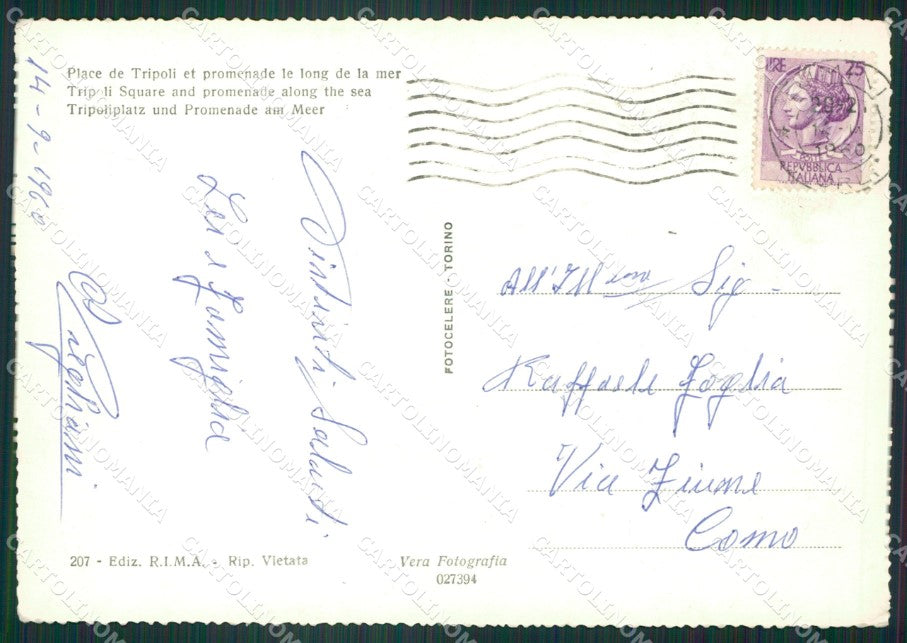 Place de Tripoli et promenade le long de la mer
Tripoli Square and promenade along the sea
Tripoliplatz und Promenade am Meer
14-9-1960
Distinti Saluti
Lei e famiglia
LIRE 25
1960
POSTE
REPVBBLICA
ITALIANA
FOTOCELERE TORINO
All'Ill mo Sig -
Raffaele Foglia
Via Fiume
Como
207 - Ediz. R.I.M.A. - Rip. Vietata
Vera Fotografia
027394
CARTOLINOMANIA